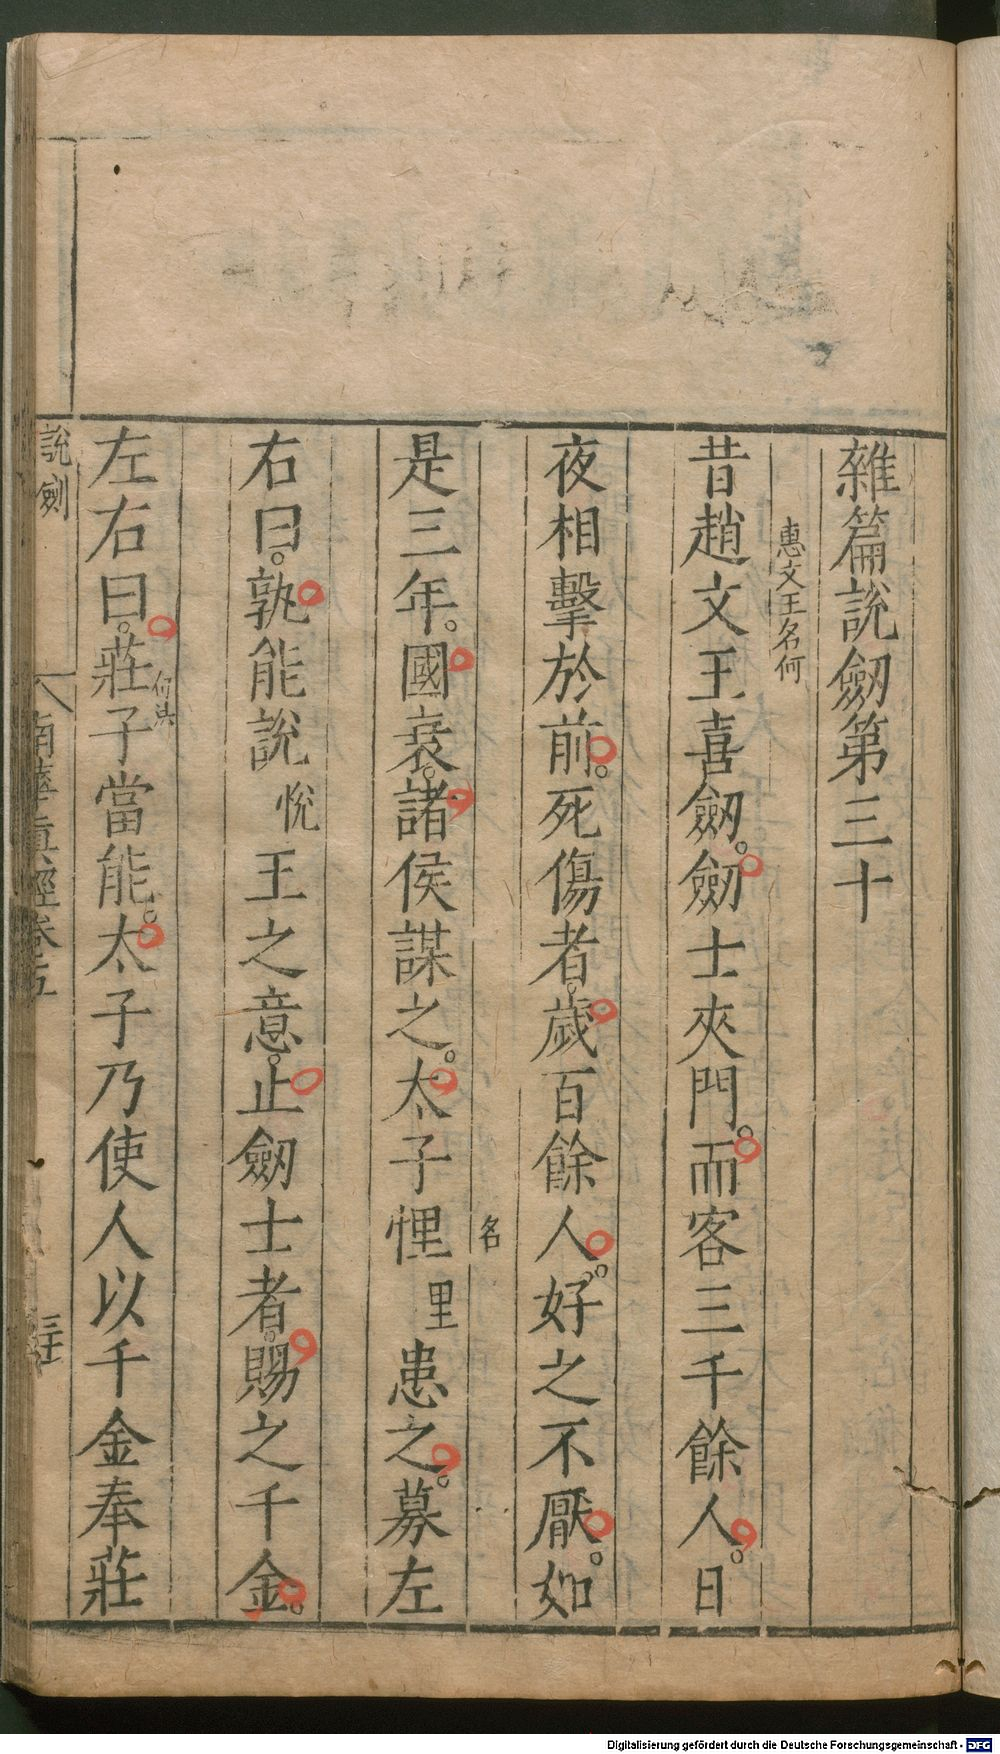 雜篇說劒第三十
惠文王名何
昔趙文王喜劒。劒士夾門。而客三千餘人。日
夜相擊於前。死傷者。歲百餘人。好之不厭。如
是三年。國衰。諸侯謀之。太子悝里患之。募左
名
右曰。孰能說悅王之意。止劒士者。賜之千金。
左右曰。莊子當能。太子乃使人以千金奉莊
說劍
南華真經卷五
Digitalisierung gefördert durch die Deutsche Forschungsgemeinschaft - DFG